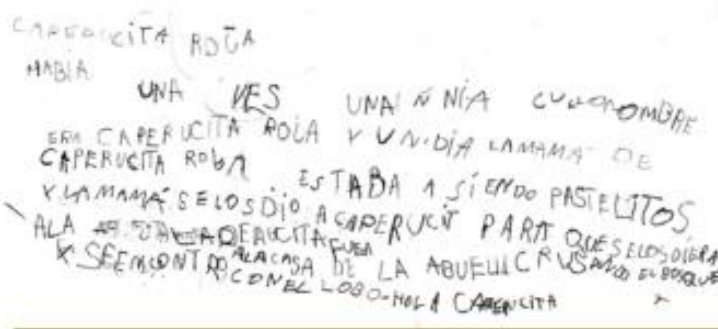 CAPERUCITA ROJA
HABÍA
UNA VES UNA ÑNIA CULLONOMBRE
ERA CAPERUCITA ROJA Y UN DÍA LA MAMÁ DE
CAPERUCITA ROJA ESTABA ASÍENDO PASTELITOS
Y LA MAMÁ SELOS DIO A CAPERUCIT PARA QUESELOSDIERA
ALA CAPERUCITA FUEA
ALA CASA DE LA ABUELI CRUSANDO EL BOSQUE
Y SEEMCONTRO CON EL LOBO-HOLA CAPERUCITA